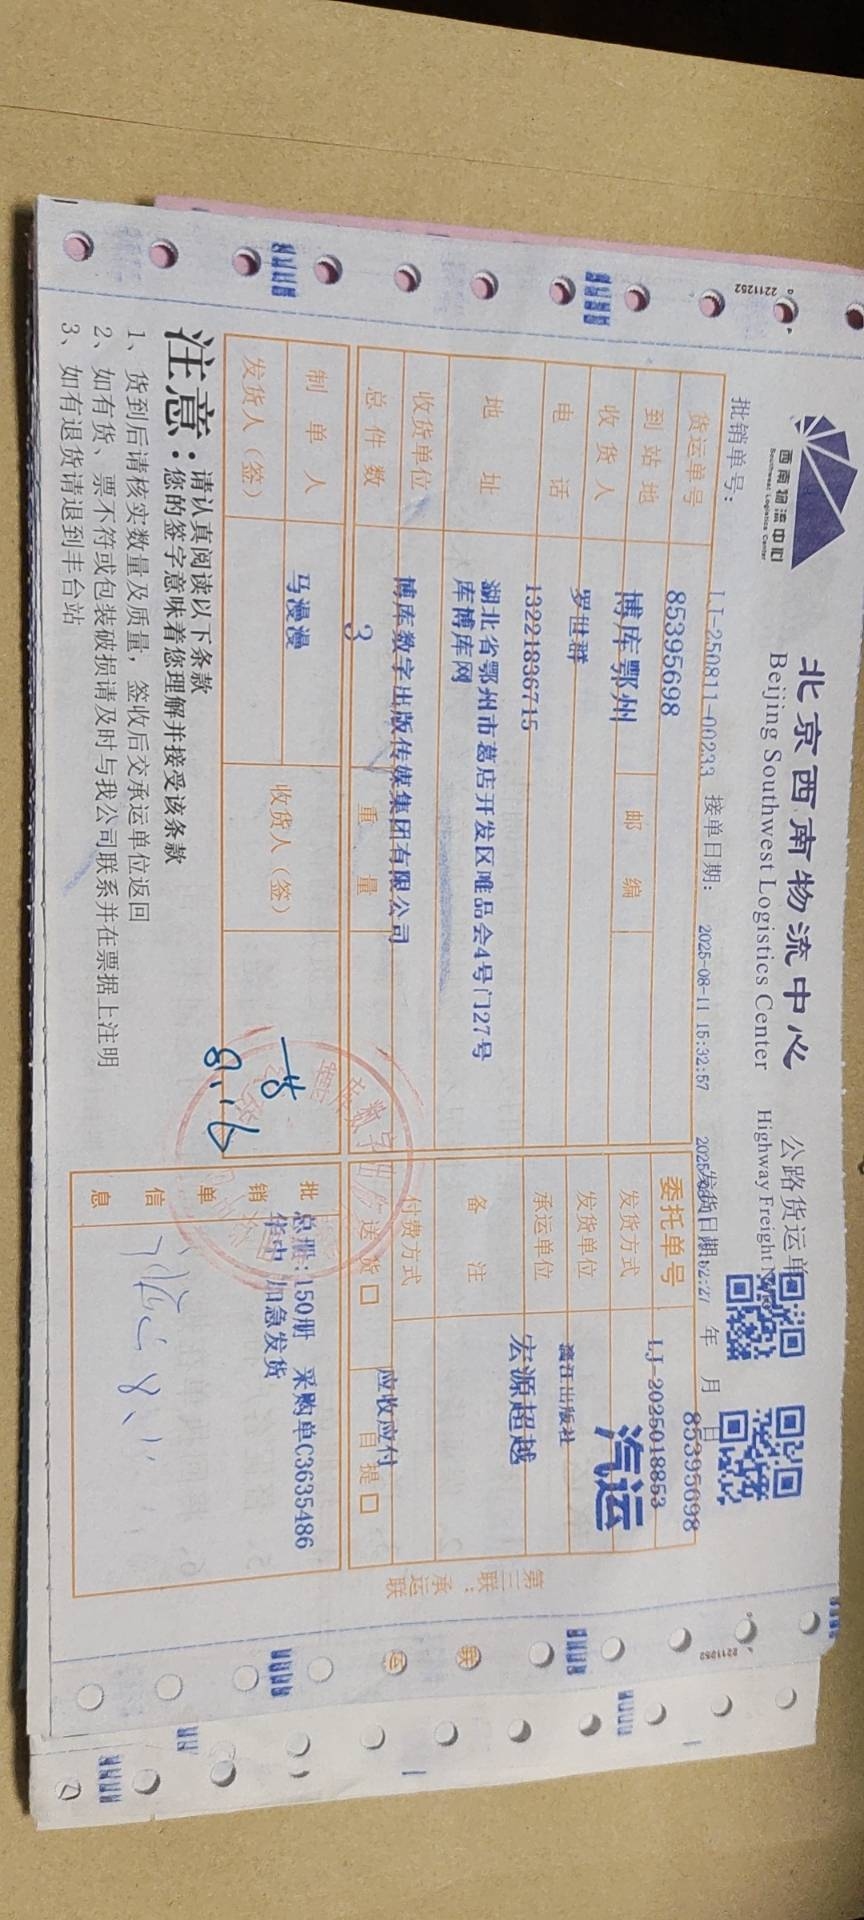 西南物流中心
Southwest Logistics Center
北京西南物流中心 公路货运单
Beijing Southwest Logistics Center Highway Freight
批销单号: LJ-250811-00233 接单日期: 2025-08-11 15:32:57 发货日期: 年 月 日
85395698
货运单号 85395698 委托单号 LJ-2025018853
到站地 博库鄂州 邮编 发货方式 汽运
收货人 罗世群 发货单位 漓江出版社
电话 13221836715 承运单位 宏源超越
地址 湖北省鄂州市葛店开发区唯品会4号门27号
库博库网
备注
收货单位 博库数字出版传媒集团有限公司 付费方式 应收应付
总件数 3 重量 送货口 自提口
制单人 马漫漫 收货人(签)
发货人(签)
批销单信息 总册:150册 采购单C3635486
华中 加急发货
注意:请认真阅读以下条款
您的签字意味着您理解并接受该条款
1、货到后请核实数量及质量,签收后交承运单位返回
2、如有货、票不符或包装破损请及时与我公司联系并在票据上注明
3、如有退货请退到丰台站
第三联:承运联
2211252
2211252